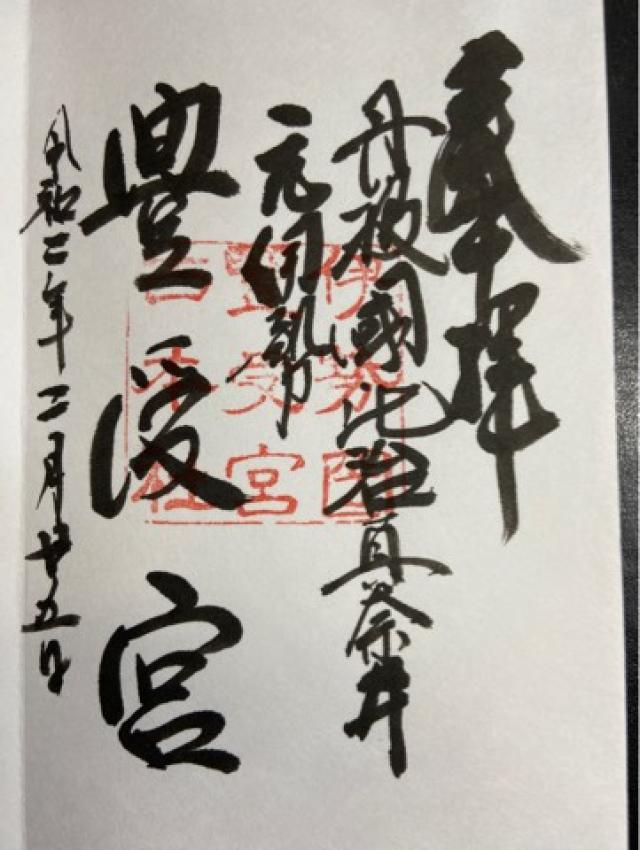 奉拝
丹波國比治真奈井
元伊勢
豊受宮
令和二年二月廿五日
伊勢国
豊受宮